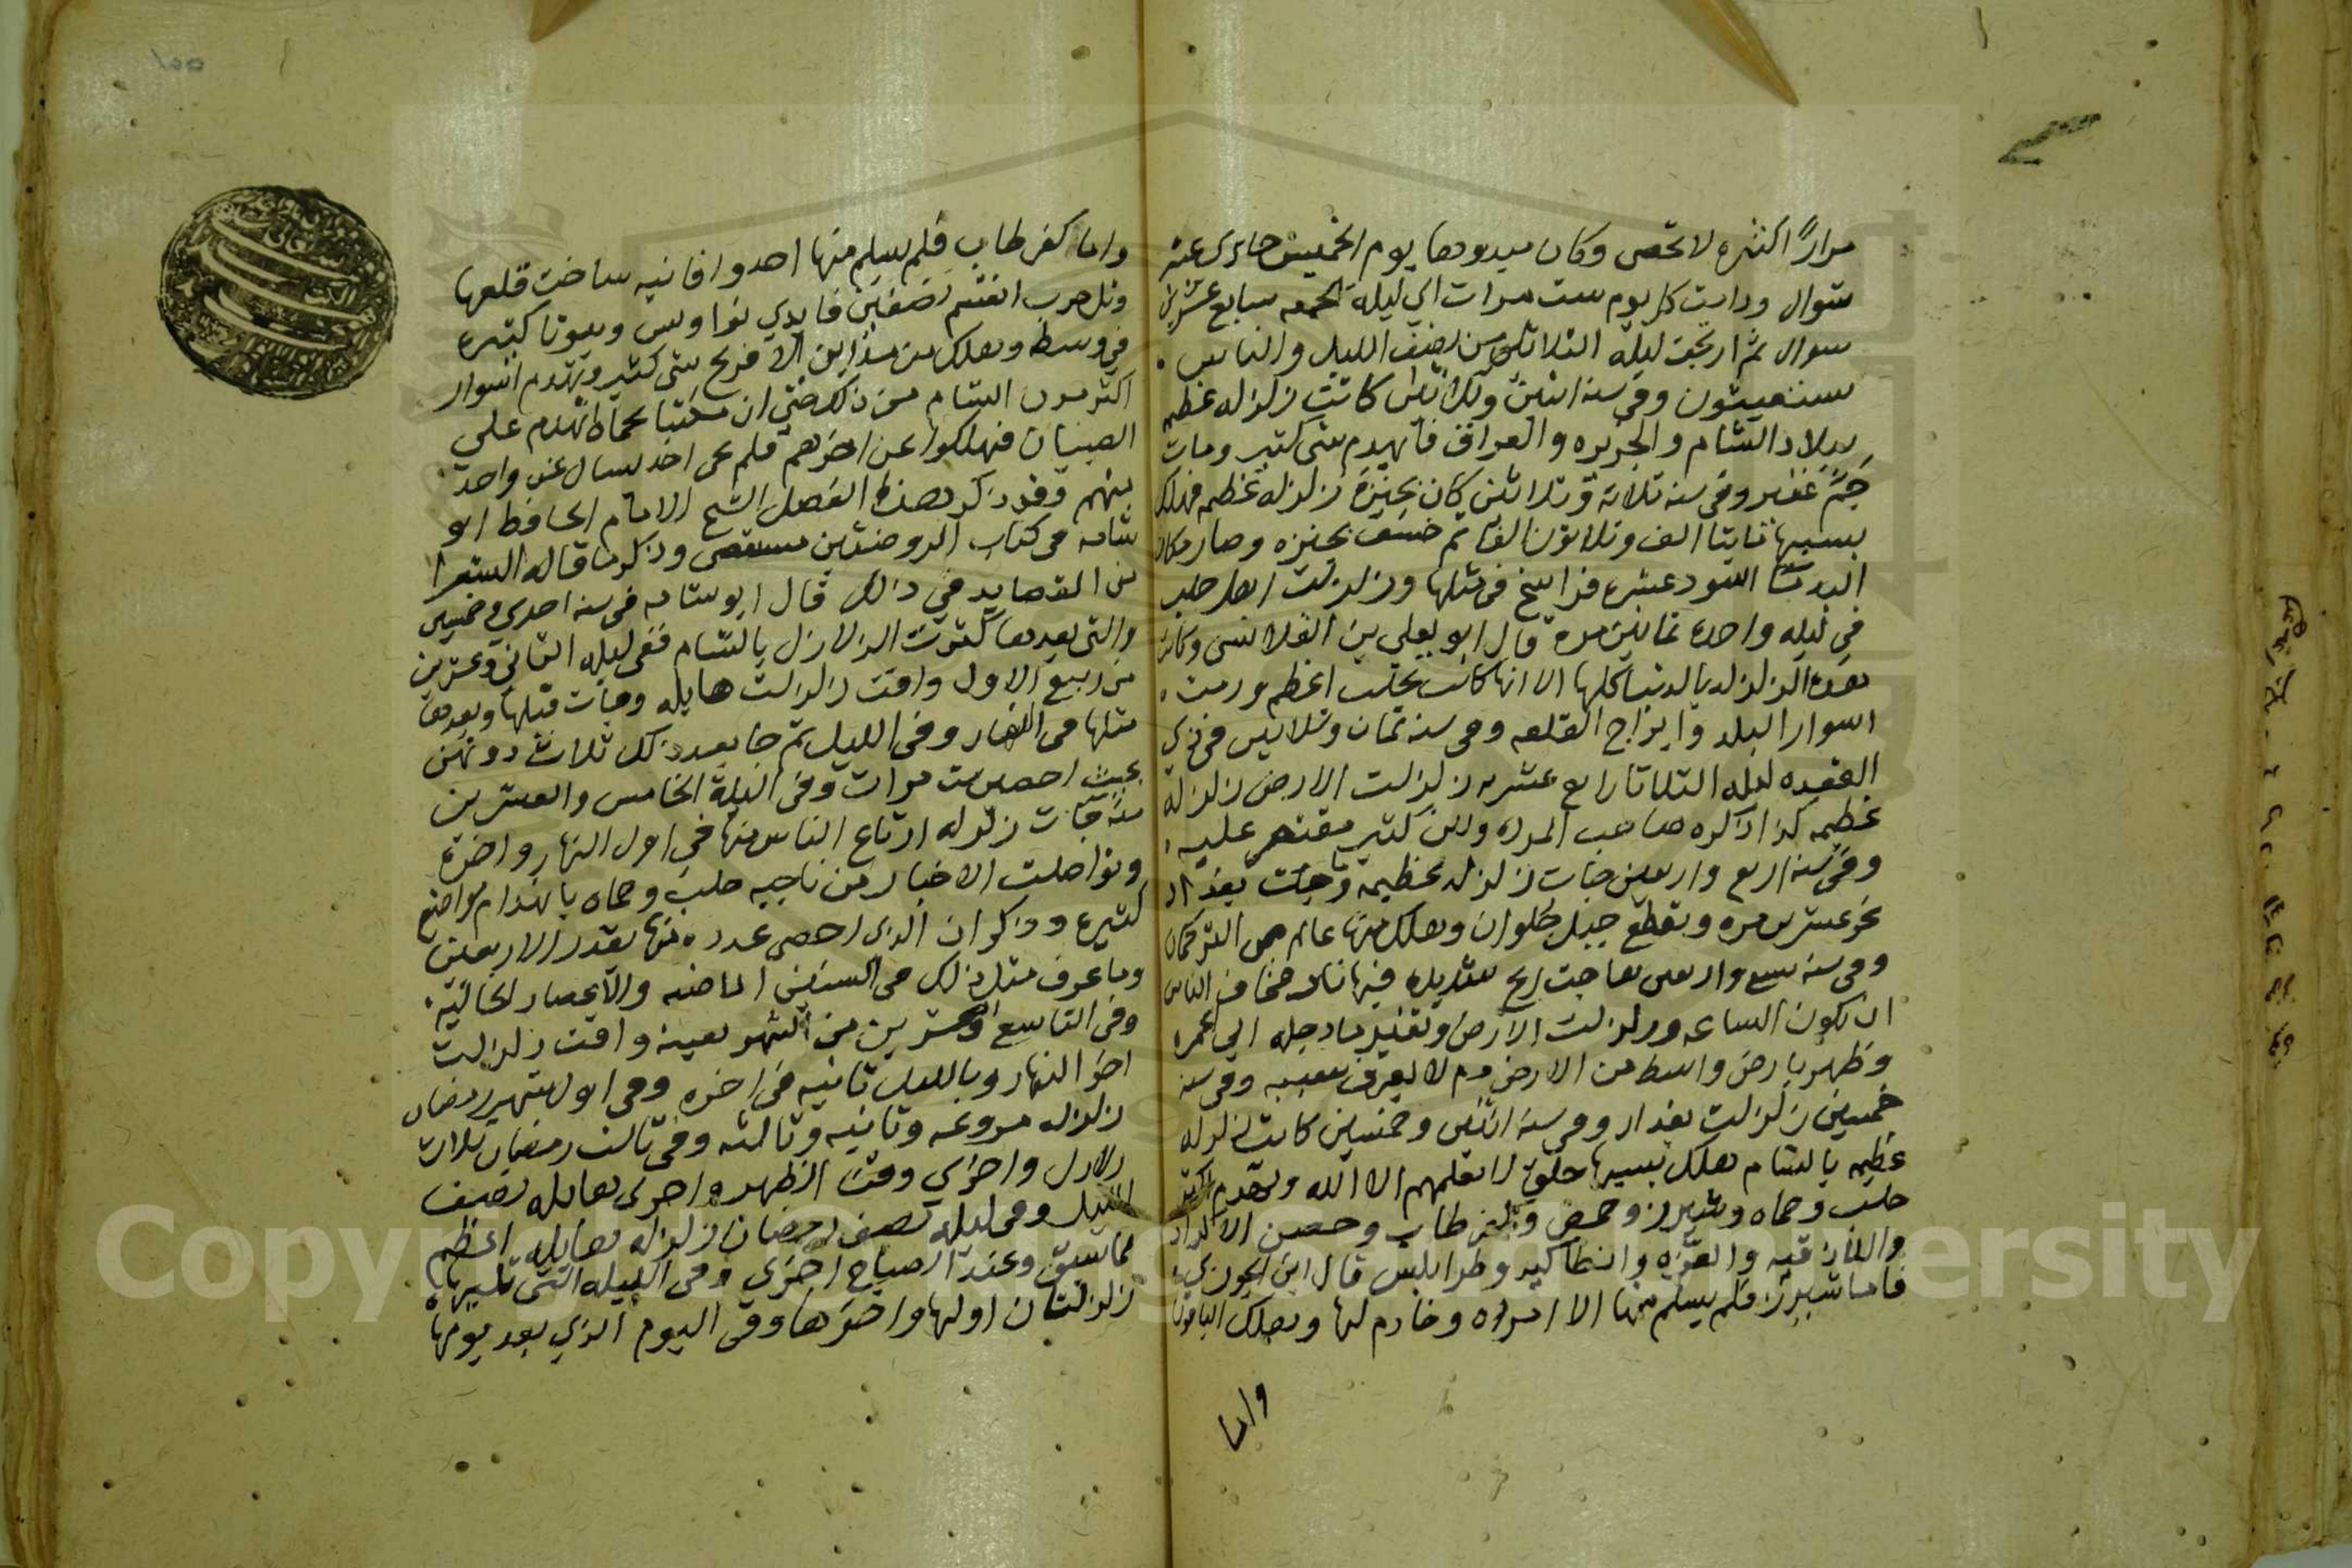 مرارًا كثيره لا تحصى وكان مبدوها يوم الخميس حادي عشر
شوال ودامت كل يوم ست مرات الى ليلة الجمعه سابع عشرين
شوال ثم ارتجت ليلة الثلاثا من نصف الليل والناس
يستغيثون وفي سنه اثنين وثلاثين كانت زلزله عظيمه
ببلاد الشام والجزيره والعراق فانهدم شي كثير ومات
جمٌ غفير وفي سنه ثلاثة وثلاثين كان بجنزة زلزله عظيمه فهلك
بسببها مايتا الف وثلاثون الفا ثم خسف بجنزه وصار مكان
البلد ما اسود عشره فراسخ في مثلها وزلزلت اهل حلب
في ليله واحدة ثمانين مره قال ابو يعلى بن القلانسى وكانت
هذه الزلزله بالدنيا كلها الا انها كانت بحلب اعظم ورمت
اسوار البلد وابراج القلعه وفي سنه ثمان وثلاثين في ذي
القعده ليله الثلاثا رابع عشره زلزلت الارض زلزله
عظيمه كذا ذكره صاحب المراه وابن كثير مقتصر عليه
وفي سنه اربع واربعين جات زلزله عظيمة وماجت بغداد
نحو عشر مره وتقطع جبل بحلوان وهلك منها عالم من التركمان
وفي سنه سبع واربعين هاجت ريح شديده فيها نار فخاف الناس
ان تكون الساعه وزلزلت الارض وتغير ما دجله الى الحمرة
وظهر بارض واسط من الارض دم لا يعرف سببه وفي سنه
خمسين زلزلت بغداد وفي سنه اثنين وخمسين كانت زلزله
عظيمه بالشام هلك بسببها خلق لا يعلمهم الا الله وتهدم اكثر
حلب وحماه وشيزر وحمص وكفر طاب وحصن الاكراد
واللاذقيه والمعره وانطاكيه وطرابلس قال ابن الجوزي
فاما شيزر فلم يسلم منها الا امراه وخادم لها وهلك الباقون
واما
واما كفر طاب فلم يسلم منها احد وافاميه ساخت قلعتها
وتل حرب انقسم نصفين فابدي نواويس وبيوتا كثيره
في وسطه وهلك من مداين الافرنج شي كثير وتهدم اسوار
اكثر مدن الشام من ذلك حتى ان مكتبا بحماه انهدم على
الصبيان فهلكوا عن اخرهم فلم يجى احد يسال عن واحد
منهم وقد ذكر هذا الفصل الشيخ الامام الحافظ ابو
شامه فى كتاب الروضتين مستقصى وذكر ما قاله الشعرا
من القصايد في ذلك قال ابو شامه في سنه احدي وخمسين
والتى بعدها كثرت الزلازل بالشام ففي ليله الثاني وعشرين
من ربيع الاول وافت زلزلة هايله وجات قبلها وبعدها
مثلها في النهار وفي الليل ثم جا بعد ذلك ثلاث دونهن
بحيث احصين ست مرات وفي الليلة الخامس والعشرين
منه جات زلزله ارتاع الناس منها في اول النهار واخره
وتواصلت الاخبار من ناحيه حلب وحماه بانهدام مواضع
كثيره وذكر ان الذي احصى عدده منها تقدر الاربعين
وما عرف مثل ذلك في السنين الماضيه والاعصار الخاليه
وفي التاسع وعشرين من الشهر بعينه وافت زلزلت
اخر النهار وبالليل ثانيه في اخره وفي اول شهر رمضان
زلزله مروعه وثانيه وثالثه وفي ثالث رمضان ثلاث
زلازل واخرى وقت الظهر واخرى هايله نصف
الليل وفي ليله نصف رمضان زلزله هايله اعظم
مما سبق وعند الصباح اخرى وفي الليله التى تليها
زلزلتان اولها واخرها وفي اليوم الذي بعد يومها
Copyright © King Saud University